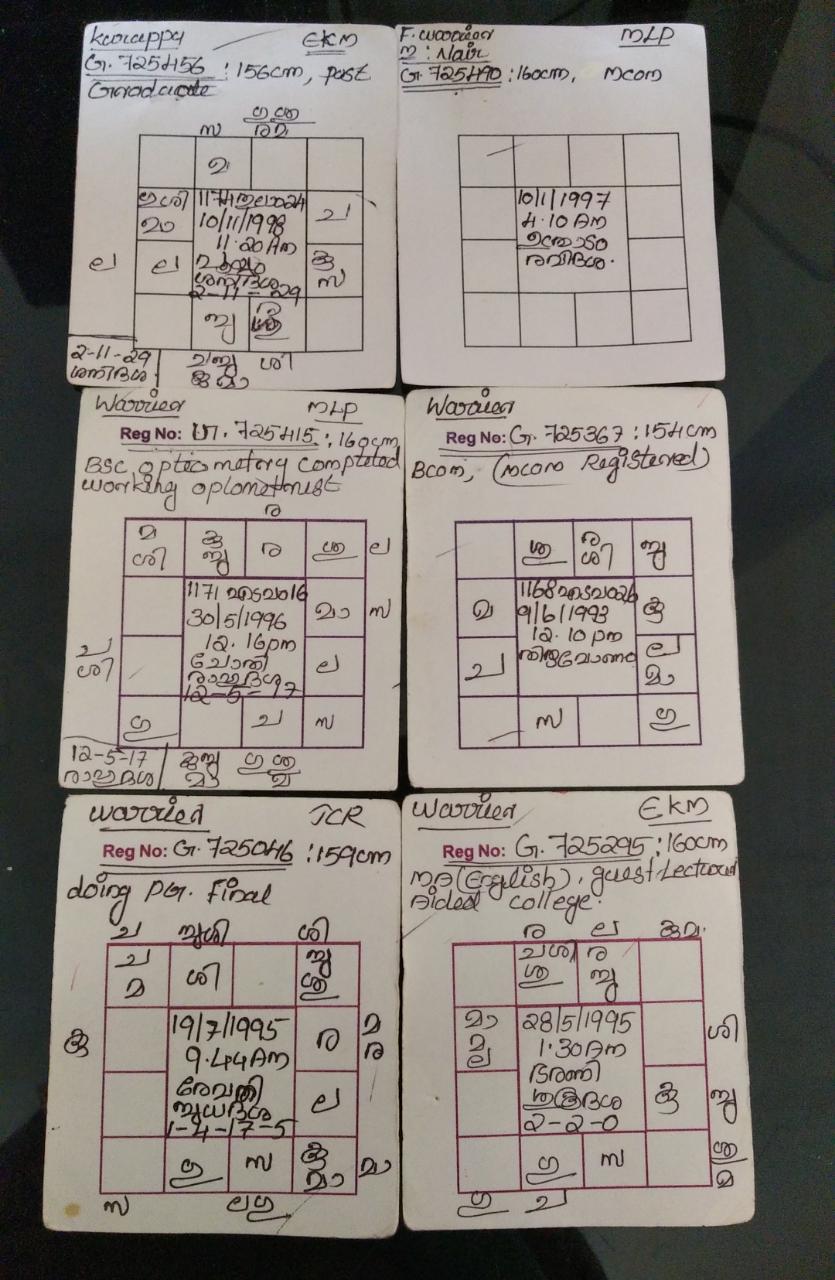 Kurappu EKM
G. 725456 : 156cm, Post
Graduate
ഗു ശു
സ രമ
മ
ശി
മാ
1174 തുലാം 24
10/11/1998
11.20 Am
ച
ല ല
മകം
ശനിദശ
2-11-29
കു
സ
ബു
2-11-29
ശനിദശ
ശി
F. Warrier MLP
M : Nair
G. 725490 : 160cm, Mcom
10/1/1997
4.10 Am
ഉത്രാടം
രവിദശ.
Warrier MLP
Reg No: G. 725415 : 160cm
BSc optometry completed
working optometrist
ര
മ
ശി
കു
ബു
ര ശു ല
1171 എടവം 16
30/5/1996
12.16pm
ചോതി
രാഹുദശ
12-5-17
മാ സ
ച
ശി
ല
ഗു ച സ
12-5-17
രാഹുദശ
കുബു
മാ
ഗു ശു
Warrier
Reg No: G. 725367 : 154cm
Bcom, (Mcom Registered)
ശു
ര
ശി
ബു
മ
1168 എടവം 26
9/6/1993
12.10 pm
തിരുവോണം
കു
ച
ല
മാ
സ ഗു
Warrier TCR
Reg No: G. 725046 : 159cm
doing PG. Final
ച ബുശി ശി
ച
മ
ശി
ബു
ശു
കു
19/7/1995
9.44Am
രേവതി
ബുധദശ
1-4-17-5
ര
മ
ര
ല
ഗു സ
കു
മാ
മാ
സ ലഗു
Warrier EKM
Reg No: G. 725295 : 160cm
MA (English), guest Lecturer
Aided college.
ര ല കുമ
ചശി
ശു
ര
ബു
മാ
മ
ല
28/5/1995
1.30Am
ഭരണി
ശുക്രദശ
2-2-0
ശി
കു ബു
ഗു സ
ശു
മ
ഗു ച